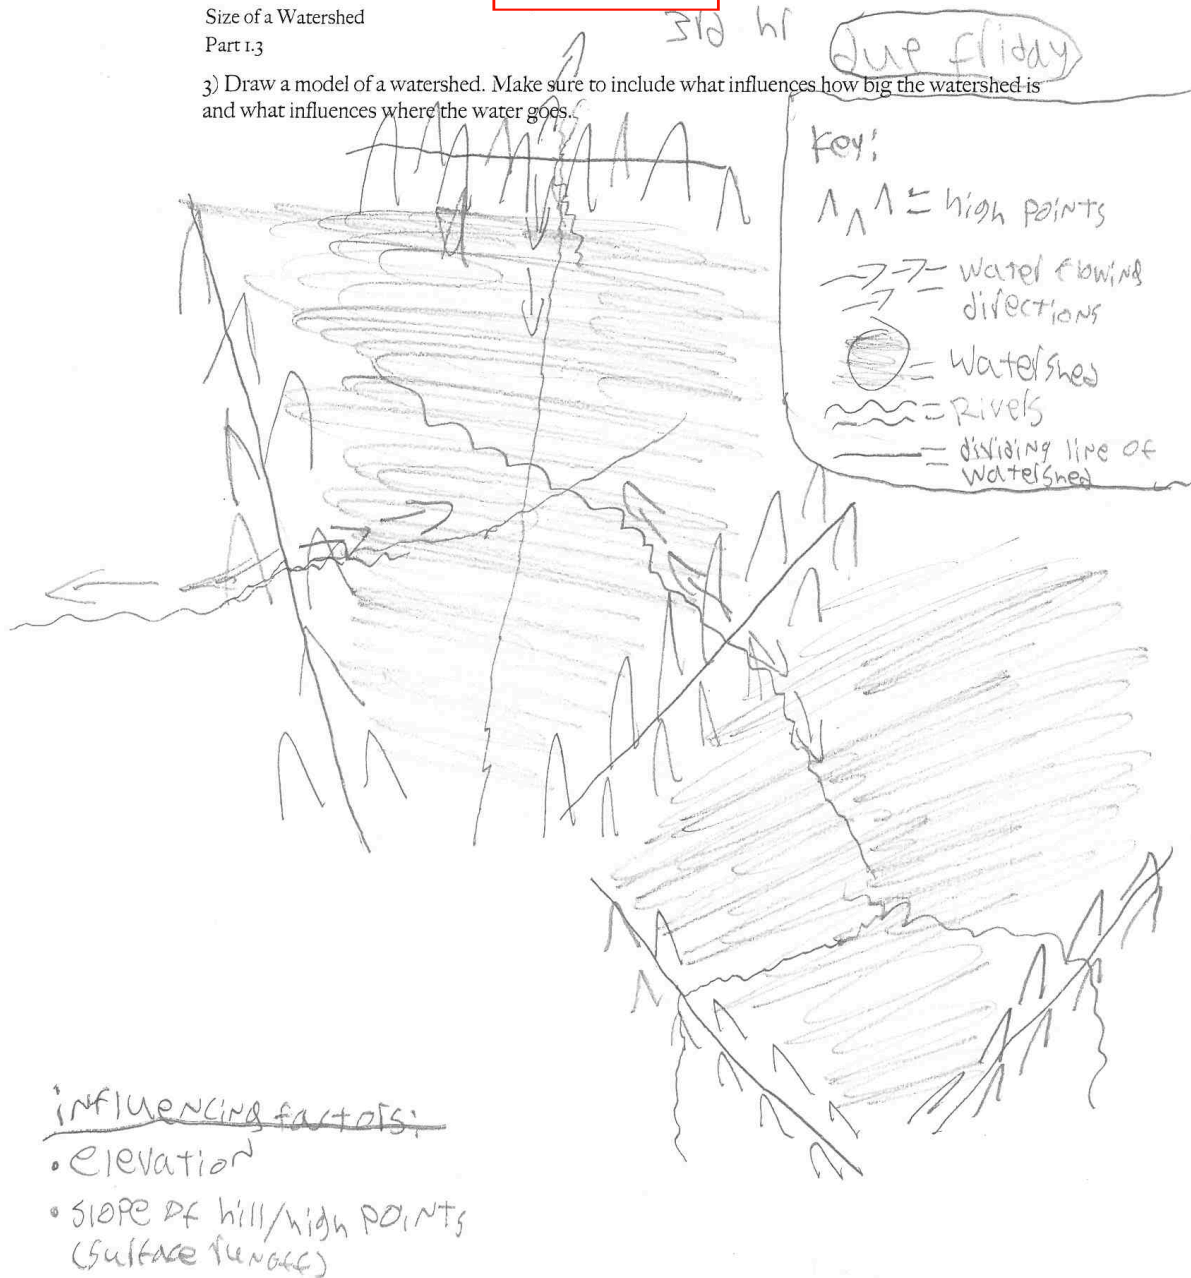 Size of a Watershed
Part 1.3
3rd hr
due friday
3) Draw a model of a watershed. Make sure to include what influences how big the watershed is
and what influences where the water goes.
Key:
= high points
= water flowing
directions
= watershed
= Rivers
= dividing line of
watershed
influencing factors:
• elevation
• slope of hill/high points
(surface runoff)